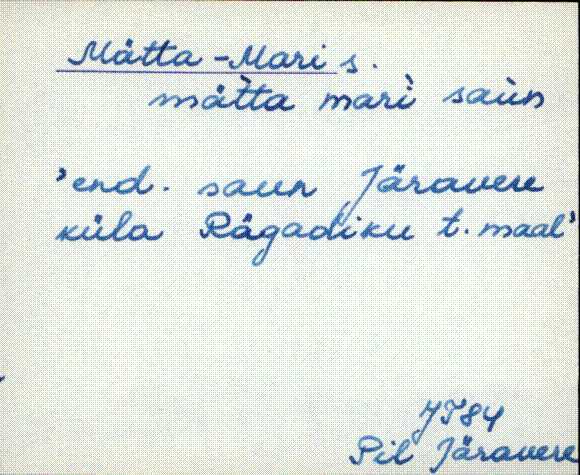 Mätta-Mari s.
mät̀ta marì saùn
'end. saun Järavere
küla Rägadiku t. maal'
JT84
Pil Järavere